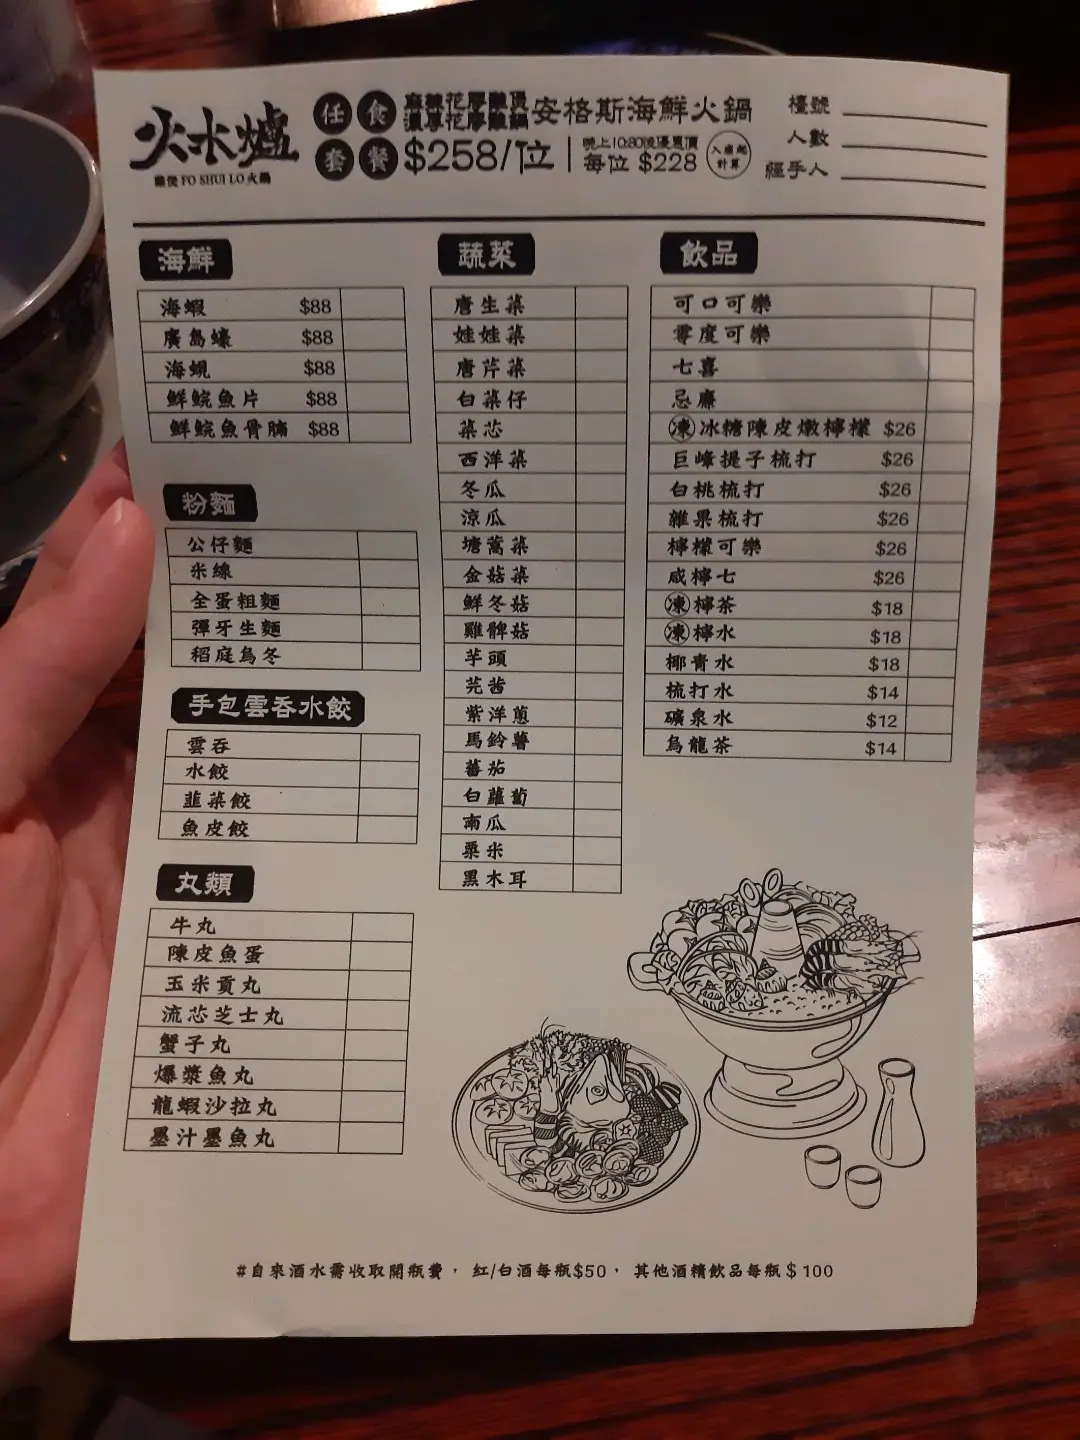 火水爐
雞煲 FO SHUI LO 火鍋
任食套餐
麻辣花膠雞煲
濃厚花膠雞鍋
安格斯海鮮火鍋
$258/位
晚上10:30後優惠價
每位 $228
入座起計算
檯號
人數
經手人
海鮮
海蝦 $88
廣島蠔 $88
海蜆 $88
鮮鯇魚片 $88
鮮鯇魚骨腩 $88
粉麵
公仔麵
米線
全蛋粗麵
彈牙生麵
稻庭烏冬
手包雲吞水餃
雲吞
水餃
韮菜餃
魚皮餃
丸類
牛丸
陳皮魚蛋
玉米貢丸
流芯芝士丸
蟹子丸
爆漿魚丸
龍蝦沙拉丸
墨汁墨魚丸
蔬菜
唐生菜
娃娃菜
唐芹菜
白菜仔
菜芯
西洋菜
冬瓜
涼瓜
塘蒿菜
金菇菜
鮮冬菇
雞髀菇
芋頭
芫茜
紫洋蔥
馬鈴薯
蕃茄
白蘿蔔
南瓜
粟米
黑木耳
飲品
可口可樂
零度可樂
七喜
忌廉
凍冰糖陳皮燉檸檬 $26
巨峰提子梳打 $26
白桃梳打 $26
雜果梳打 $26
檸檬可樂 $26
咸檸七 $26
凍檸茶 $18
凍檸水 $18
椰青水 $18
梳打水 $14
礦泉水 $12
烏龍茶 $14
#自來酒水需收取開瓶費， 紅/白酒每瓶$50， 其他酒精飲品每瓶$100